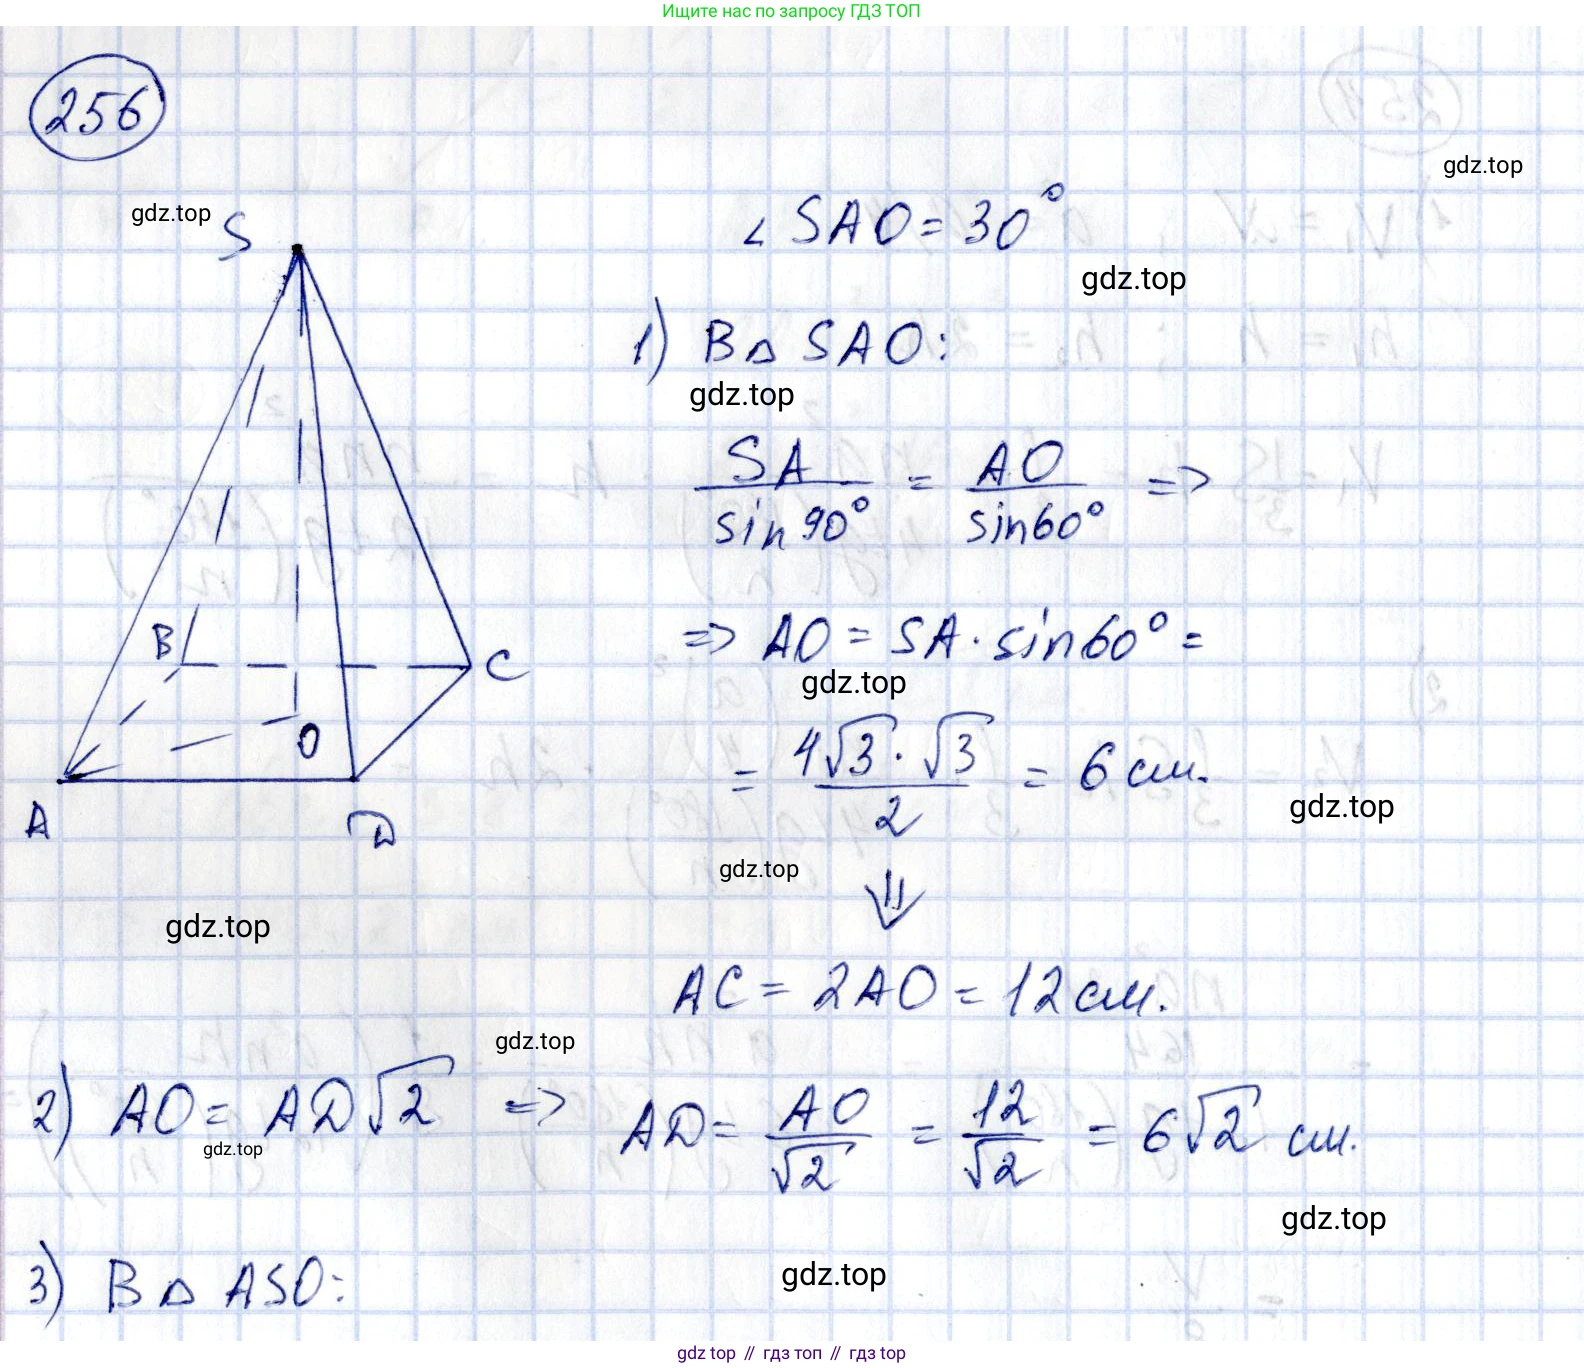 Ищите нас по запросу ГДЗ ТОП
256
gdz.top
gdz.top
S
∠ SAO = 30°
gdz.top
1) В △ SAO:
gdz.top
SA / sin 90° = AO / sin 60° =>
=> AO = SA · sin 60° =
gdz.top
B
C
O
A
D
= 4√3 · √3 / 2 = 6 см.
gdz.top
gdz.top
⇓
gdz.top
AC = 2AO = 12 см.
gdz.top
2) AO = AD√2 => AD = AO / √2 = 12 / √2 = 6√2 см.
gdz.top
gdz.top
3) В △ ASO:
gdz.top
gdz.top // гдз топ // гдз top